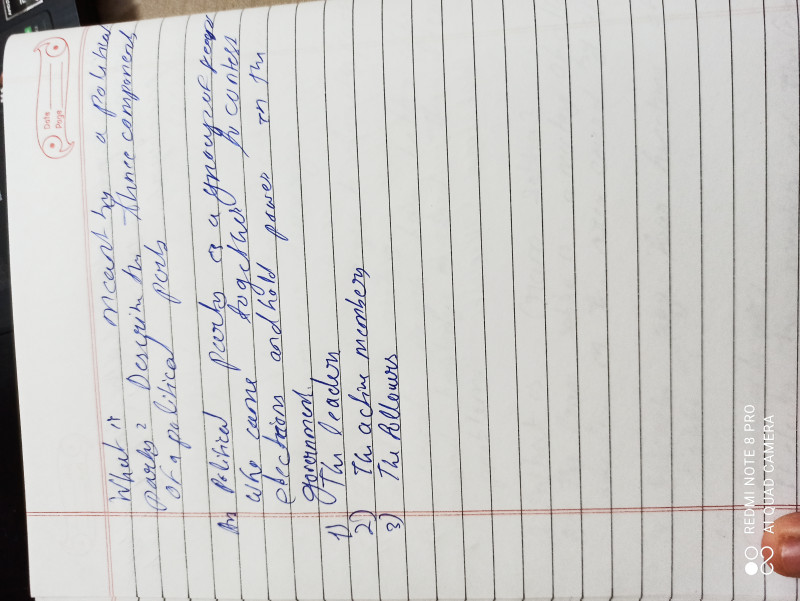 Date
Page
What is meant by a political
party? Describe the three components
of a political party
Ans Political party is a group of people
who came together to contest
elections and hold power in the
government.
1) The leaders
2) The active members
3) The followers
REDMI NOTE 8 PRO
AI QUAD CAMERA